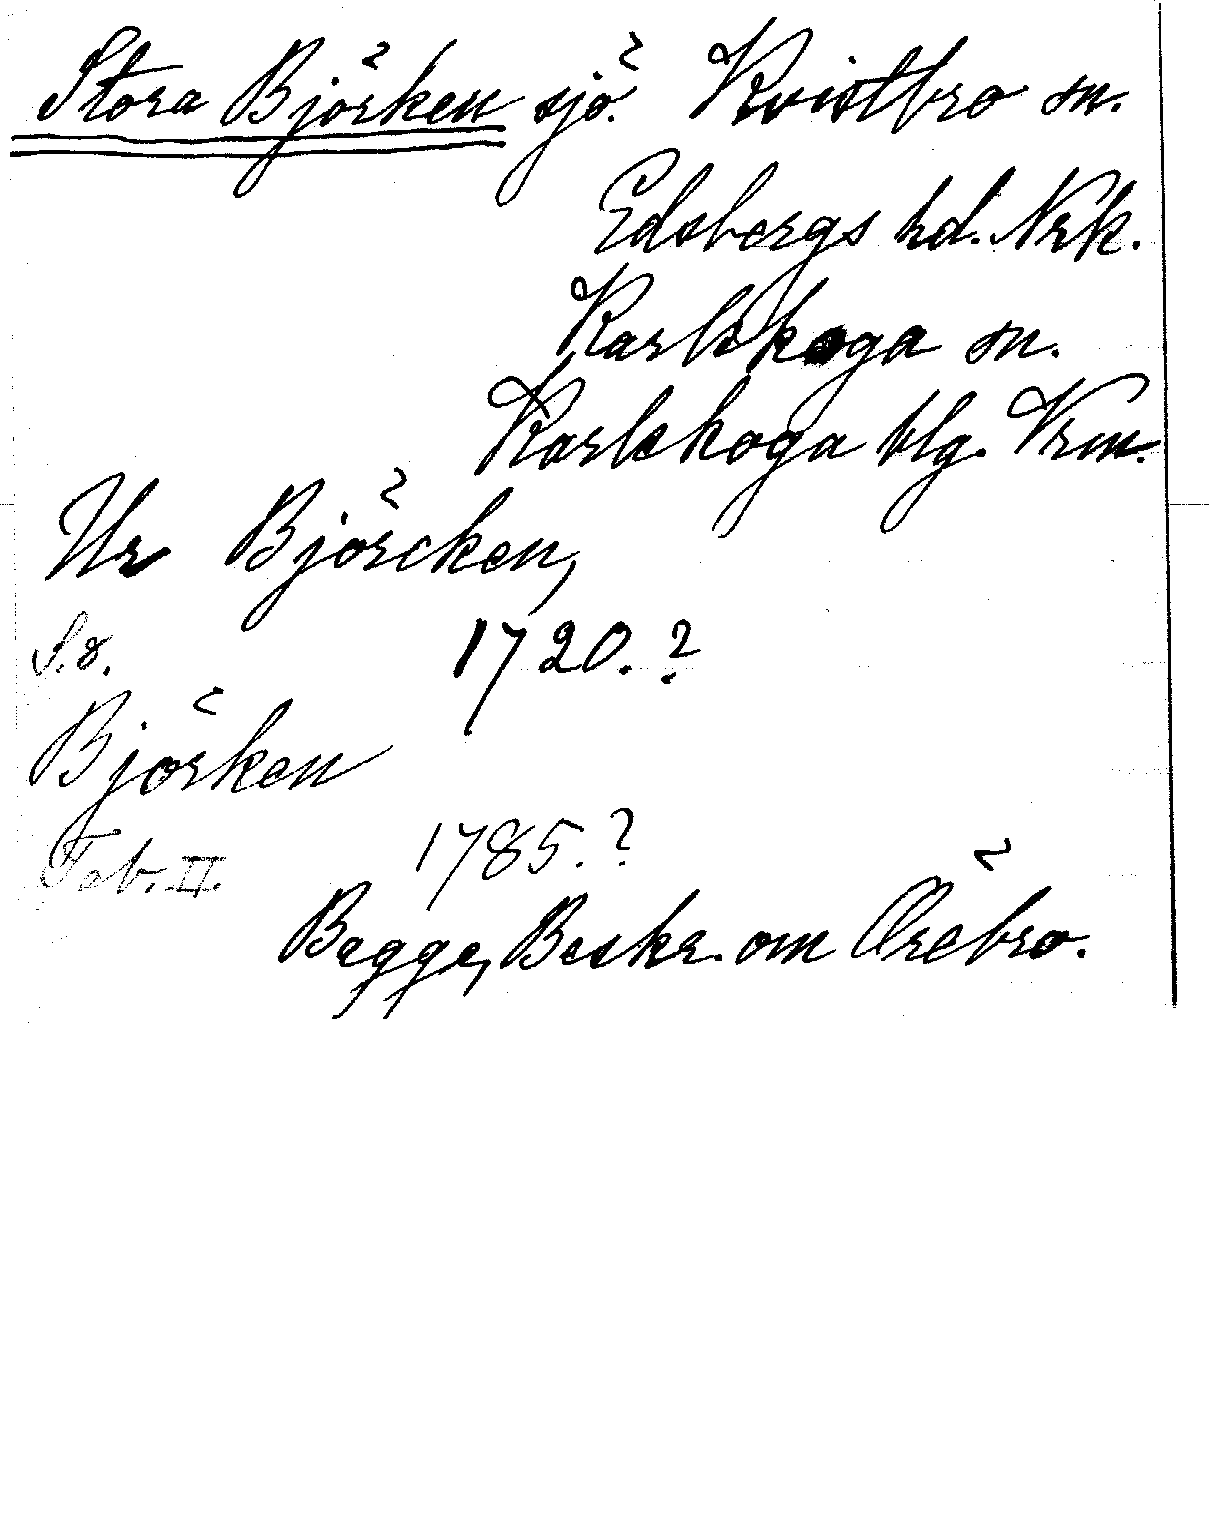 Stora Björken sjö. Kvistbro sn.
Edsbergs hd. Nrk.
Karlskoga sn.
Karlskoga blg. Vrm.
Ur Björcken,
S.8. 1720.?
Björken
Tab. II. 1785.?
Begge, Beskr. om Örebro.